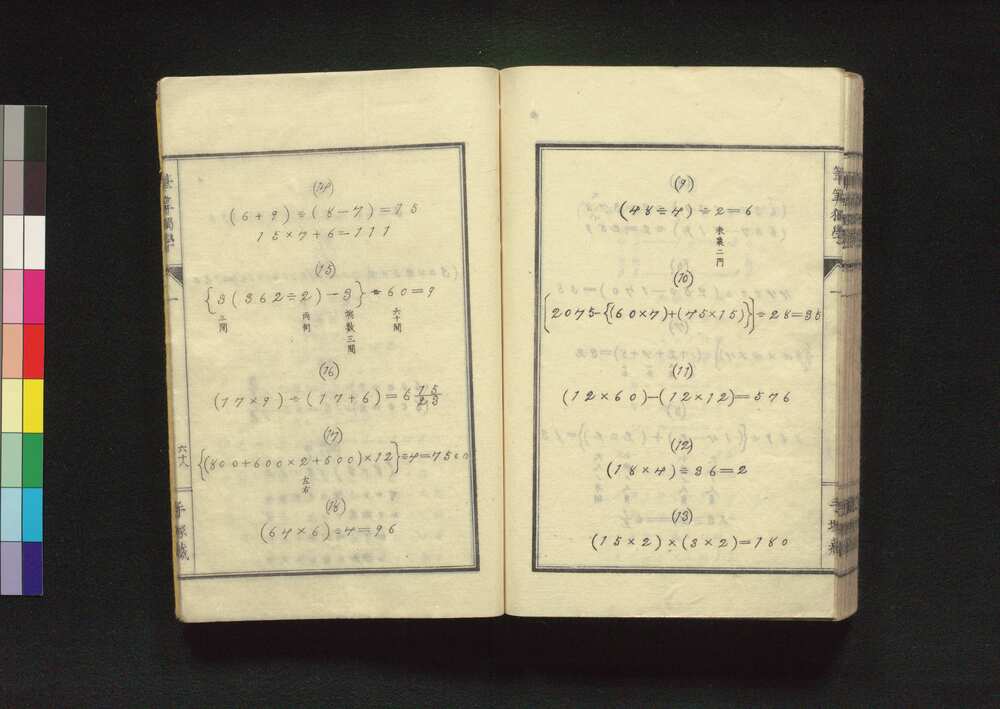 (9)
(48÷4)÷2=6
表裏二門
(10)
[2075-{(60×7)+(45×15)}]÷28=35
(11)
(12×60)-(12×12)=576
(12)
(18×4)÷36=2
(13)
(15×2)×(3×2)=180
(14)
(6+9)÷(8-7)=15
15×7+6=111
(15)
{3(362÷2)-3}÷60=9
三間
両側
六十間
(16)
(17×9)÷(17+6)=6 15/23
(17)
{(800+600×2+500)×12}÷4=7500
左右
(18)
(64×6)÷4=96
筆算獨學
一
六十八